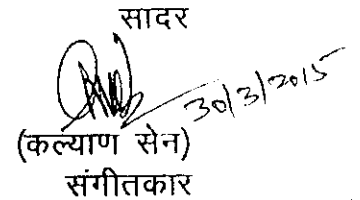 सादर
30/3/2015
(कल्याण सेन)
संगीतकार